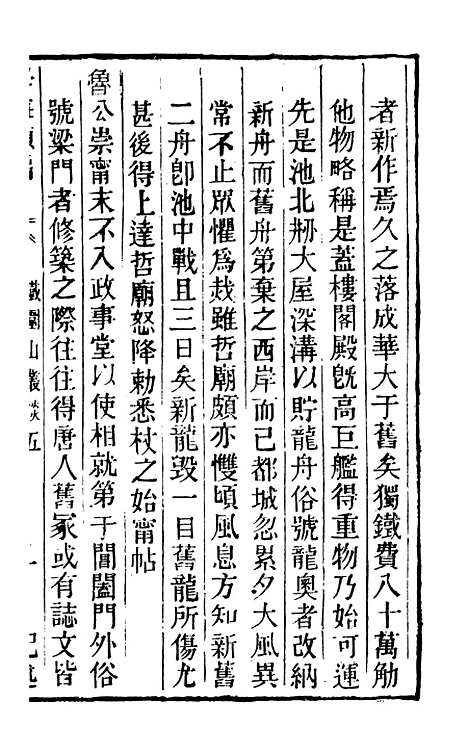 者新作焉久之落成華大于舊矣獨鐵費八十萬觔
他物略稱是蓋樓閣殿旣高巨艦得重物乃始可運
先是池北刱大屋深溝以貯龍舟俗號龍奧者改納
新舟而舊舟第棄之西岸而已都城忽累夕大風異
常不止眾懼爲烖雖哲廟頗亦㦜頃風息方知新舊
二舟卽池中戰且三日矣新龍毀一目舊龍所傷尤
甚後得上達哲廟怒降勅悉杖之始甯帖
魯公崇甯末不入政事堂以使相就第于閶闔門外俗
號梁門者修築之際往往得唐人舊冢或有誌文皆
鐵圍山叢談五